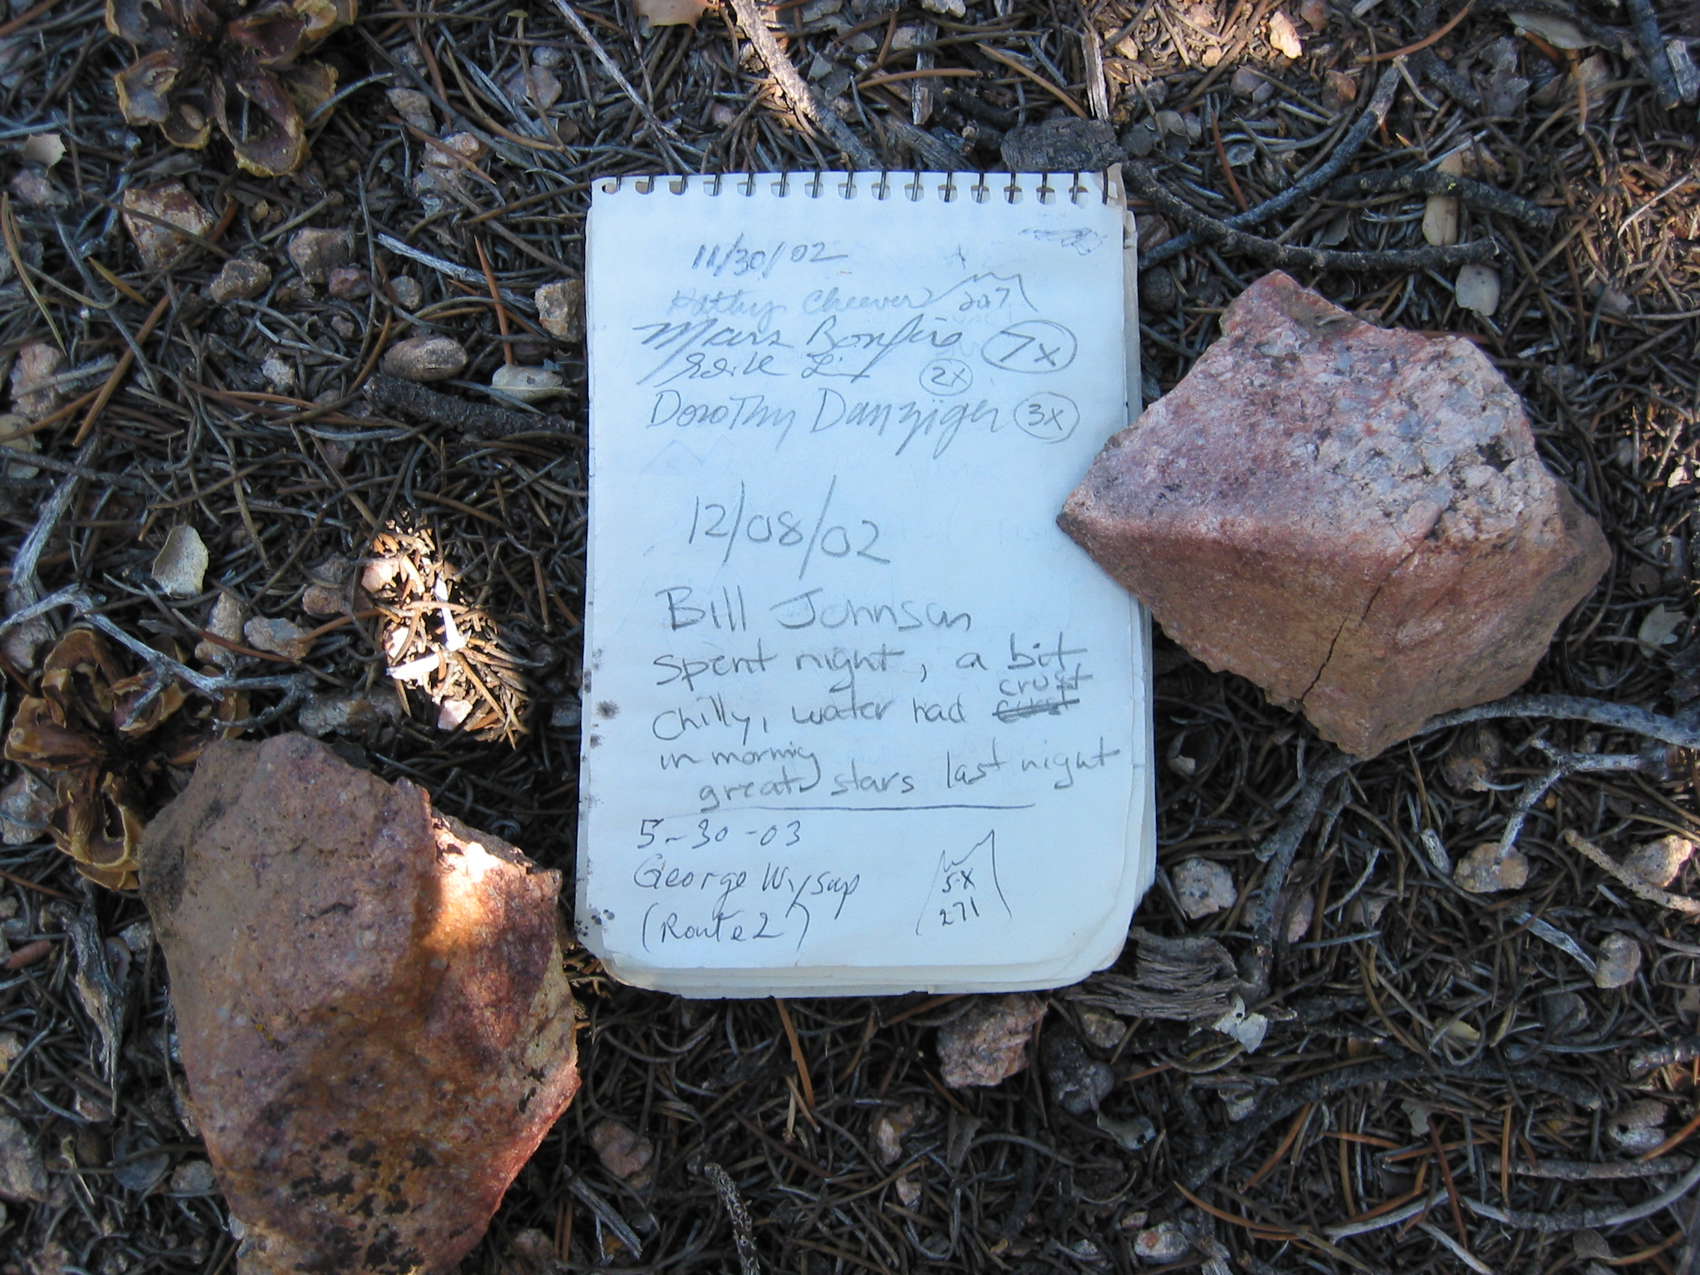 11/30/02
Kathy Cheever 207
Mars Bonfire 7x
2x
Dorothy Danziger 3x
12/08/02
Bill Johnson
spent night, a bit
chilly, water had crust
in morning
great stars last night
5-30-03
George Wysup 5X
(Route 2) 271